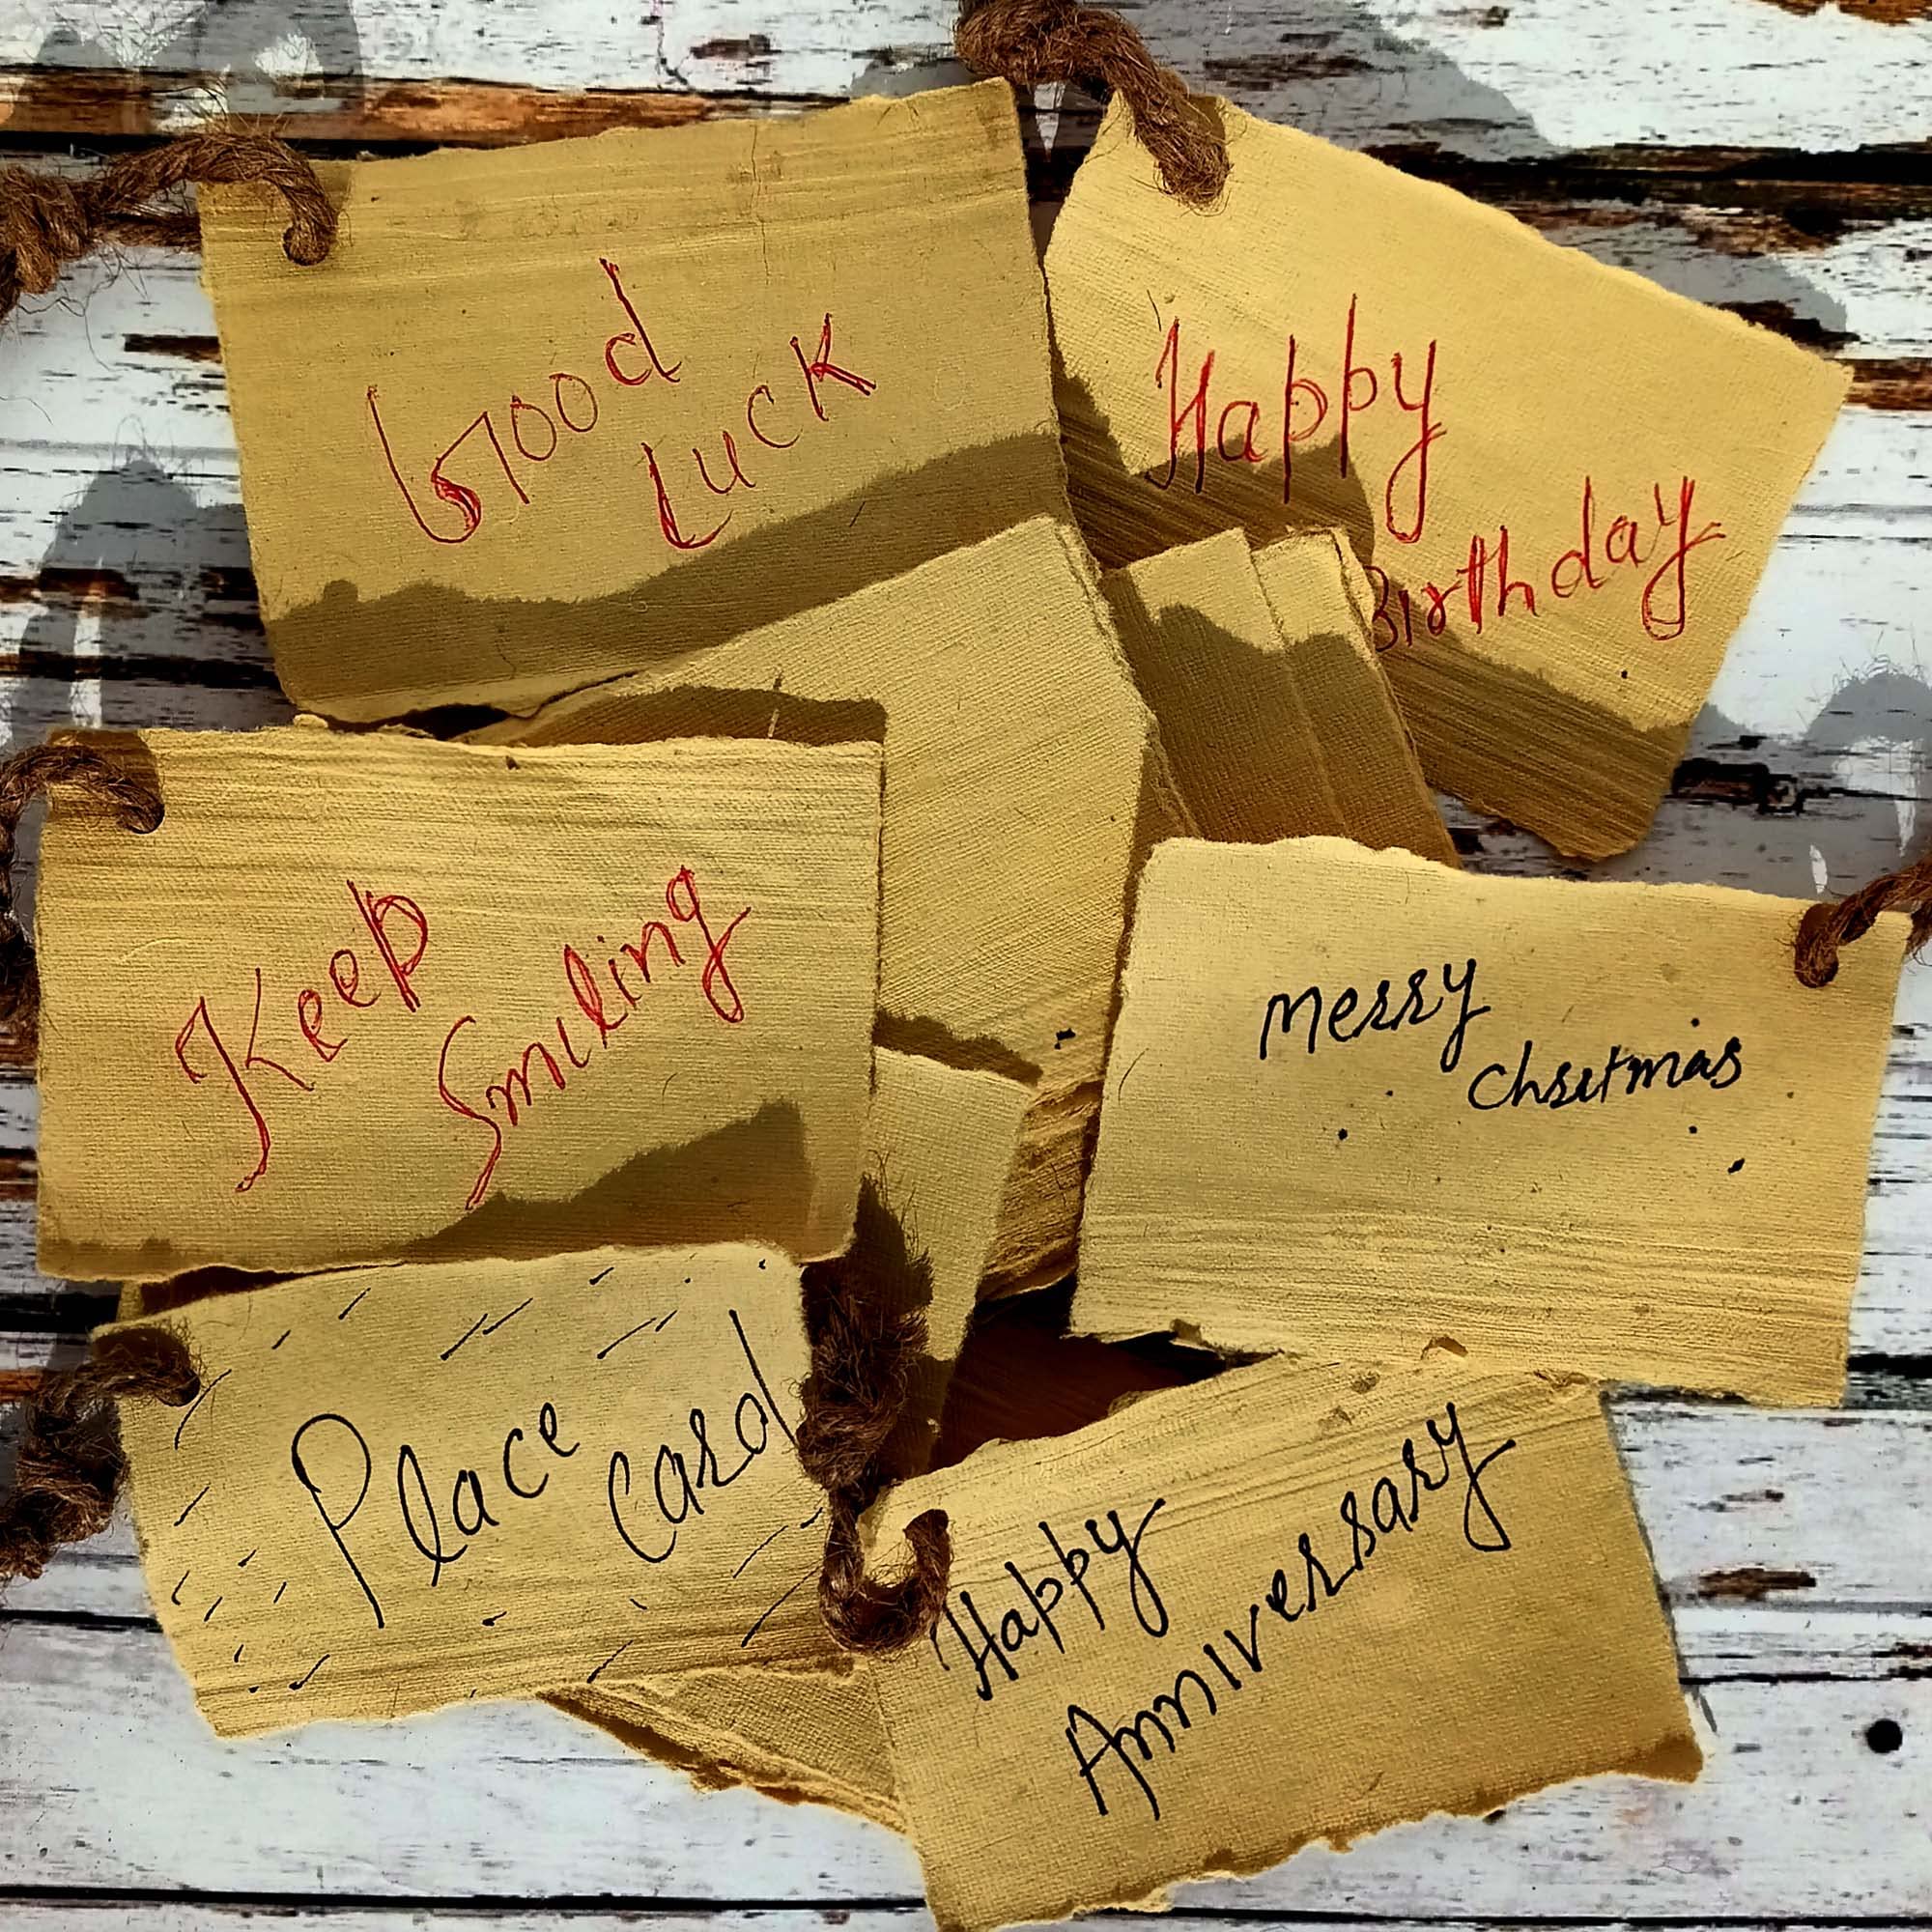 Good
Luck
Happy
Birthday
Keep
Smiling
Merry
Chsitmas
Place
Card
Happy
Anniversary